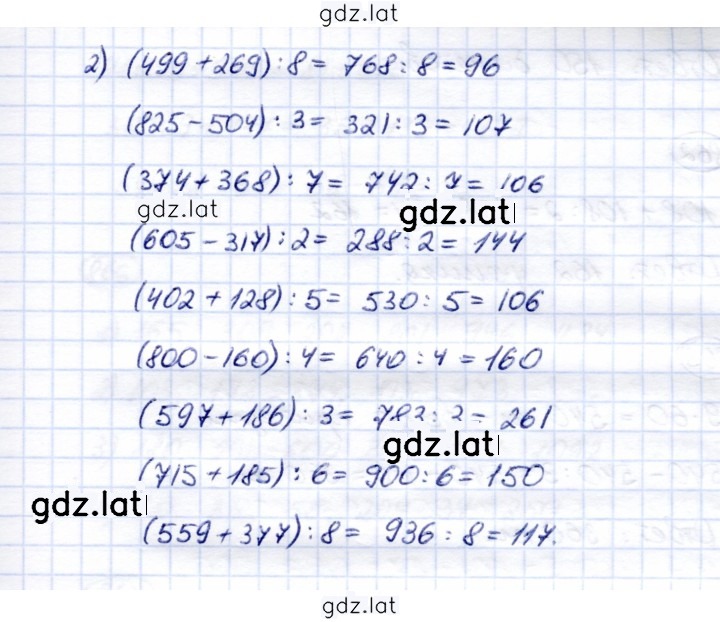 gdz.lat
2) (499 + 269) : 8 = 768 : 8 = 96
(825 - 504) : 3 = 321 : 3 = 107
(374 + 368) : 7 = 742 : 7 = 106
gdz.lat gdz.lat
(605 - 317) : 2 = 288 : 2 = 144
(402 + 128) : 5 = 530 : 5 = 106
(800 - 160) : 4 = 640 : 4 = 160
(597 + 186) : 3 = = 261
gdz.lat
(715 + 185) : 6 = 900 : 6 = 150
gdz.lat
(559 + 377) : 8 = 936 : 8 = 117.
gdz.lat